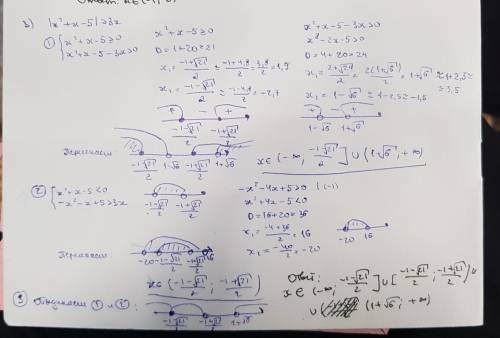 Ответ: x∈(-1;
в) |x²+x-5|≥3x
① { x²+x-5≥0
x²+x-5-3x>0
x²+x-5≥0
D=1+20=21
x₁=(-1+√21)/2 ≈ (-1+4,8)/2 = 3,8/2 = 1,9
x₂=(-1-√21)/2 ≈ (-1-4,8)/2 = -2,7
+ - +
(-1-√21)/2 (-1+√21)/2
x²+x-5-3x>0
x²-2x-5>0
D=4+20=24
x₁=(2+√24)/2 = 2(1+√6)/2 = 1+√6 ≈ 1+2,5 ≈ 3,5
x₂=1-√6 ≈ 1-2,5 ≈ -1,5
+ - +
1-√6 1+√6
Пересекаем
(-1-√21)/2 1-√6 (-1+√21)/2 1+√6
x∈(-∞; (-1-√21)/2]∪(1+√6; +∞)
② { x²+x-5<0
-x²-x+5≥3x
(-1-√21)/2 (-1+√21)/2
-x²-4x+5>0 |(-1)
x²+4x-5<0
D=16+20=36
x₁=(-4+36)/2=16
x₂=-40/2=-20
-20 16
Пересекаем
-20 (-1-√21)/2 (-1+√21)/2 16
x∈((-1-√21)/2; (-1+√21)/2)
③ Объединяем ① и ②:
(-1-√21)/2 (-1+√21)/2 1+√6
Ответ:
x∈(-∞; (-1-√21)/2]∪[(-1-√21)/2; (-1+√21)/2)∪
∪(1+√6; +∞)